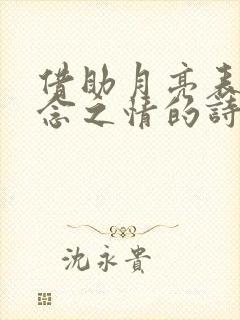 借助月亮表
念之情的詩
沈永貴